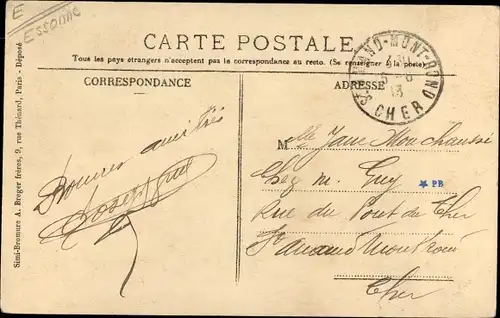 E
ESSONNE
CARTE POSTALE
Tous les pays étrangers n'acceptent pas la correspondance au recto. (Se renseigner à la poste).
CORRESPONDANCE
ADRESSE
ST-AMAND-MONT-ROND
13
CHER
Simi-Bromure A. Breger frères, 9, rue Thénard, Paris - Déposé
Bonnes amitiés
Mlle Jane
Chez M. Guy
PB
Rue du Pont de Cher
St Amand Mont Rond
Cher